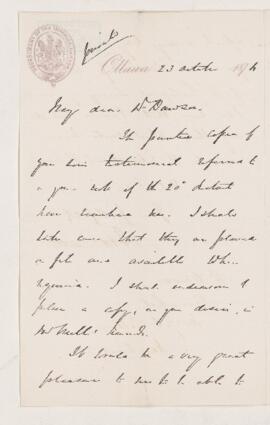 private
Ottawa 23 October 1874
My dear Dr Dawson.
The printed copies of
your Son's testimonial referred to
in your note of the 20th instant
have reached me. I shall
take care that they are placed
on file and available when
required. I shall endeavour to
place a copy, as you desire, in
Mr Mills's hands.
It would be a very great
pleasure to me to be able to